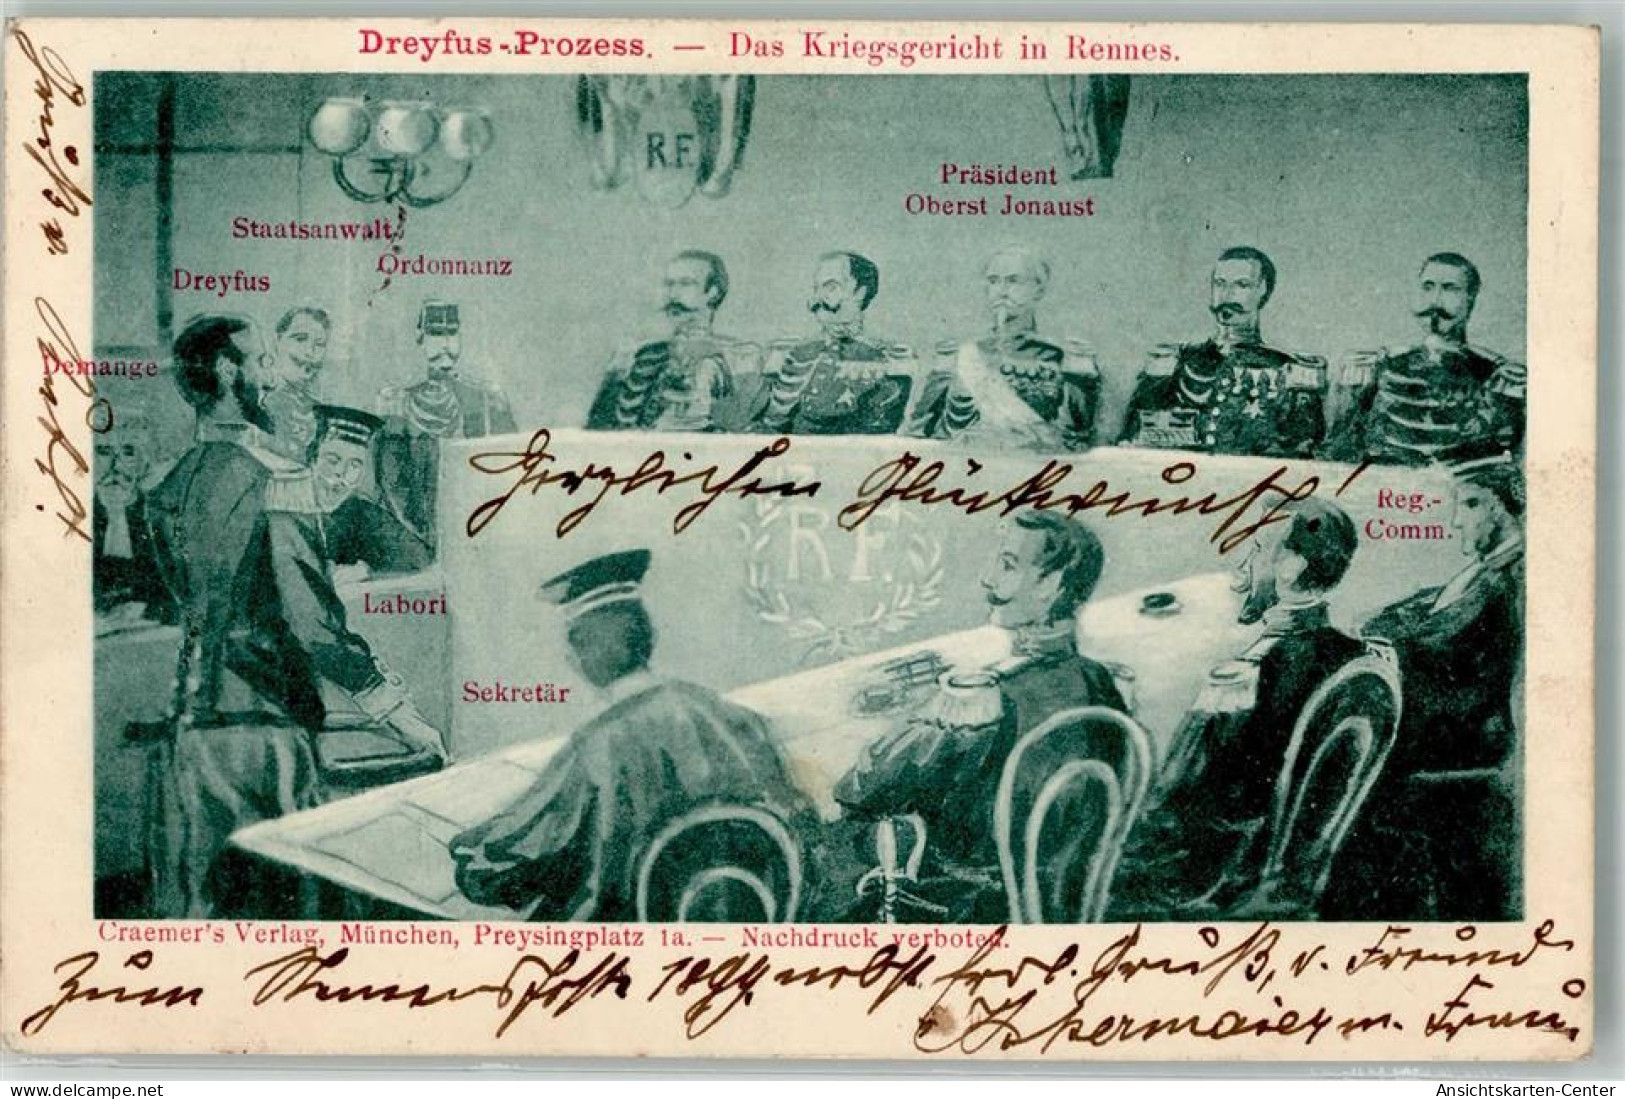 Dreyfus-Prozess. — Das Kriegsgericht in Rennes.
R.F.
Präsident
Oberst Jonaust
Staatsanwalt
Ordonnanz
Dreyfus
Demange
Herzlichen Glückwunsch!
R F.
Reg.-
Comm.
Labori
Sekretär
Craemer's Verlag, München, Preysingplatz 1a. — Nachdruck verboten.
Zum Namensfeste 1899 nebst frdl. Gruß, v. Freund
m. Frau.
Gruß v.
Ansichtskarten-Center